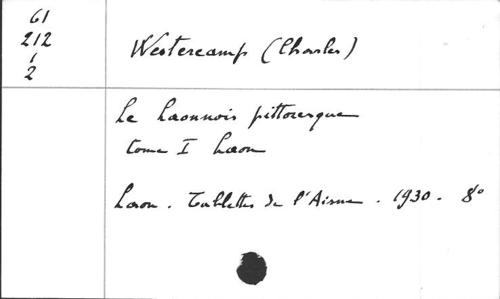 61
212
1
2
Westercamp (Charles)
Le Laonnois pittoresque
tome I Laon
Laon. Tablettes de l'Aisne. 1930. 8°